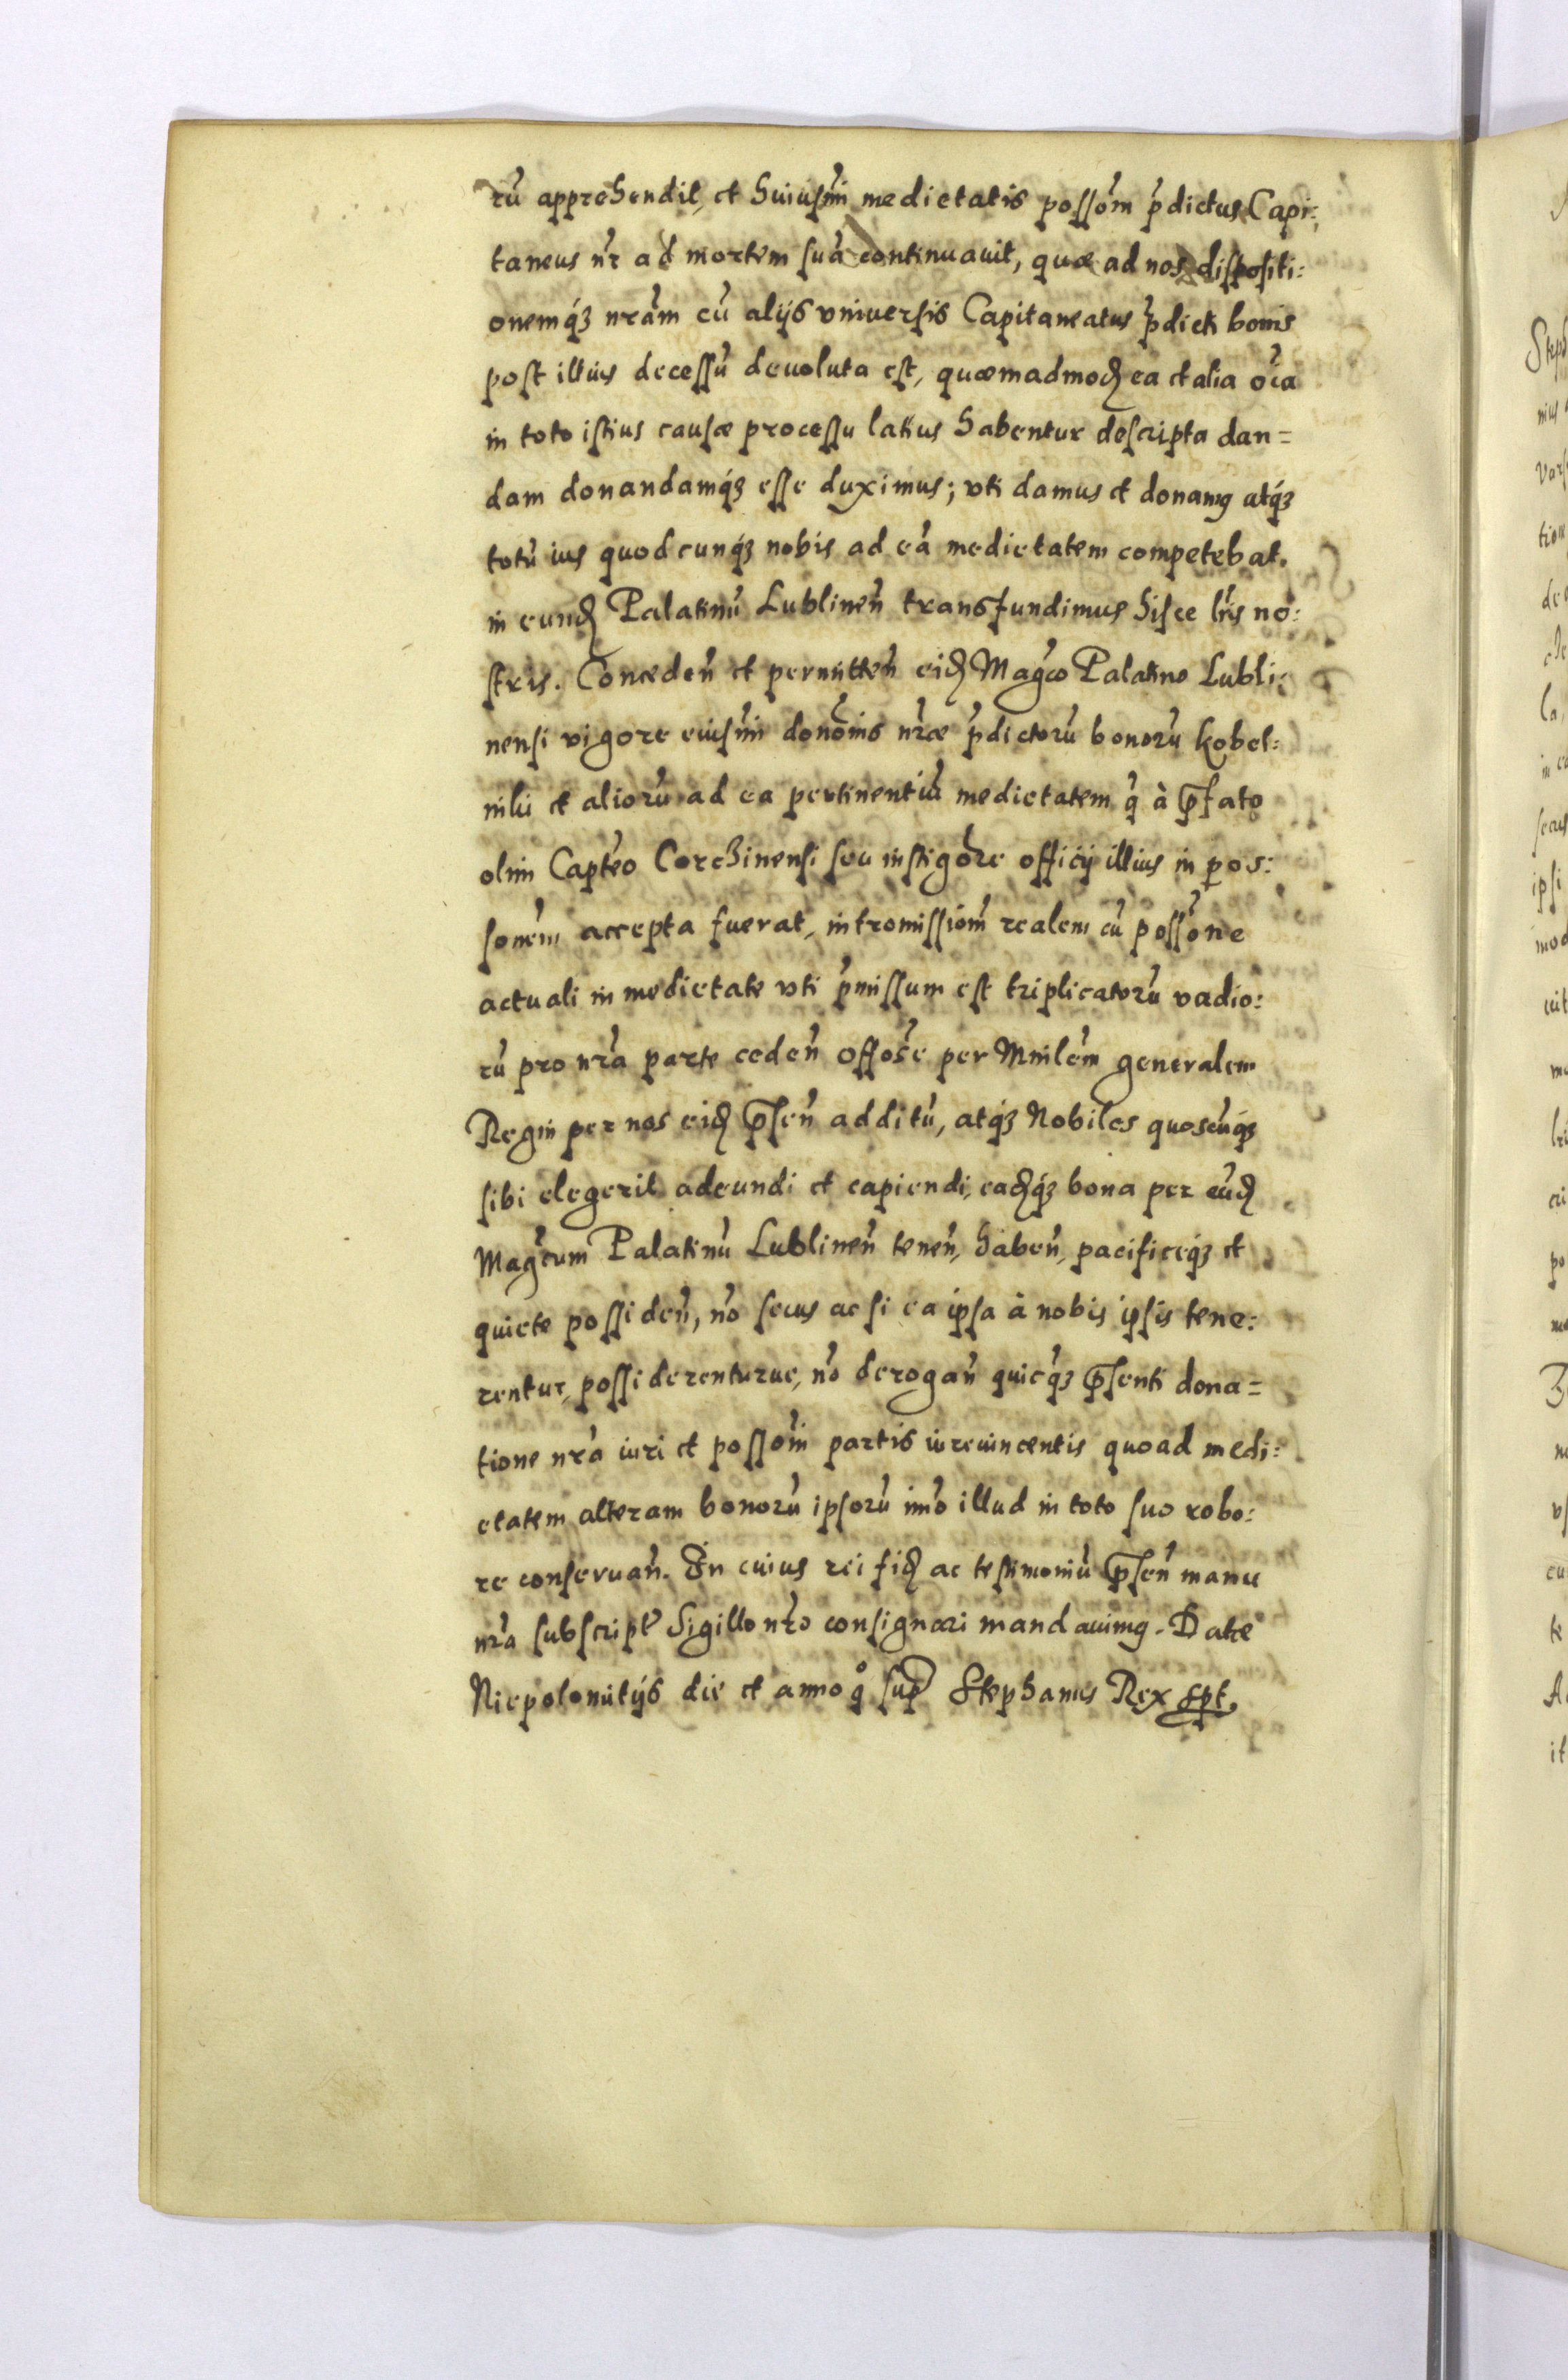 rũ apprehendit, et huiusmi medietatis possom̃ p̃dictus Capi:
taneus nr̃ ad mortem suã continuauit, quæ ad nos dispositi:
onemq́ꝫ nrãm cũ alijs vniuersis Capitaneatus p̃dicti bonis
post illius decessũ deuoluta est, quæmadmodꝫ ea et alia oĩa
in toto istius causæ processu latius habentur descripta dan=
dam donandamq́ꝫ esse duximus; vti damus et donamꝰ atq́ꝫ
totũ ius quodcunq́ꝫ nobis ad eã medietatem competebat.
in eundꝫ Palatinũ Lublineñ transfundimus hisce lr̃is no:
stris. Concedeñ et permitteñ eidꝫ Mag̃co Palatino Lubli:
nensi vigore eiusmi donõnis nr̃æ p̃dictorũ bonorũ Kobel:
nilii et aliorũ ad ea pertinentiũ medietatem q̃ à p̃fato
olim Capteõ Corczinensi seu instigõre officij illius in pos:
sonem̃ accepta fuerat, intromissiom̃ realem cũ possõne
actuali in medietate vti p̃missum est triplicatorũ vadio:
rũ pro nr̃a parte cedeñ offose per Mnilẽm generalem
Regni per nos eidꝫ p̃señ additũ, atq́ꝫ Nobiles quoscũq́ꝫ
sibi elegerit adeundi et capiendi, eadꝫq́ꝫ bona per eũdꝫ
Mag̃cum Palatinũ Lublineñ teneñ, habeñ, pacificeq́ꝫ et
quiete possideñ, nõ secus ac si ea ipsa à nobis ipsis tene:
rentur, possiderenturue, nõ derogañ quicq́ꝫ p̃senti dona=
tione nr̃a iuri et possom̃ partis iureuincentis quoad medi:
etatem alteram bonorũ ipsorũ imõ illud in toto suo robo:
re conseruañ. In cuius rei fidꝫ ac testimoniũ p̃señ manu
nr̃a subscript̃ Sigillo nr̃o consignari mandauimꝰ. Datæ
Niepolomitijs die et anno q̊ sup̃ Stephanus Rex spt.